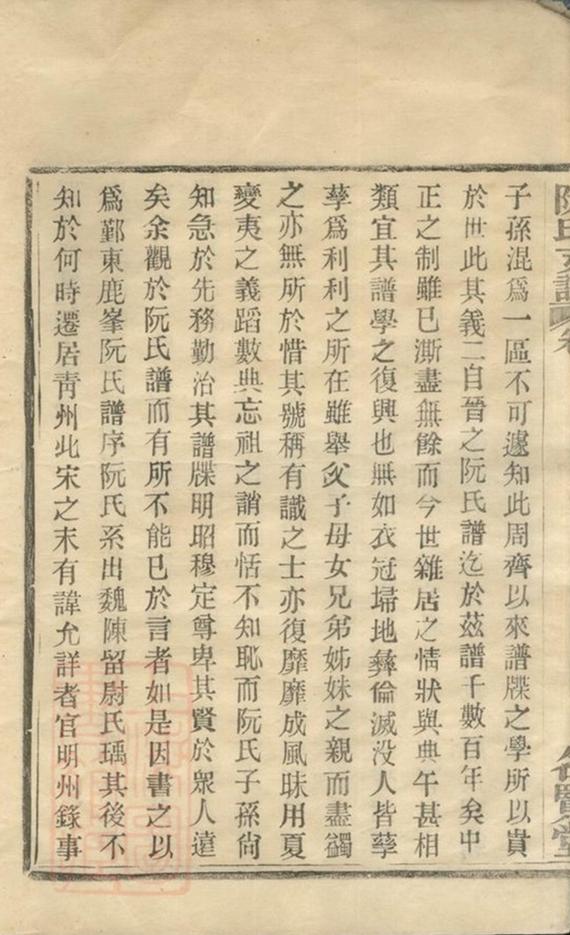 阮氏支譜 卷
子孫混爲一區不可遽知此周齊以來譜牒之學所以貴
於世此其義二自晉之阮氏譜迄於茲譜千數百年矣中
正之制雖已澌盡無餘而今世雜居之情狀與典午甚相
類宜其譜學之復興也無如衣冠埽地彝倫滅没人皆孳
孳爲利利之所在雖舉父子母女兄弟姊妹之親而盡蠲
之亦無所於惜其號稱有識之士亦復靡靡成風昧用夏
變夷之義蹈數典忘祖之誚而恬不知恥而阮氏子孫尙
知急於先務勤治其譜牒明昭穆定尊卑其賢於眾人遠
矣余觀於阮氏譜而有所不能已於言者如是因書之以
爲鄞東鹿峯阮氏譜序阮氏系出魏陳留尉氏瑀其後不
知於何時遷居靑州此宋之末有諱允詳者官明州錄事